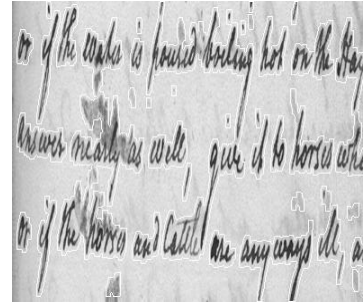 or if the water is poured boiling hot on the Hay
answer nearly as well, give it to horses
or if the horses and Cattle are any ways ill,